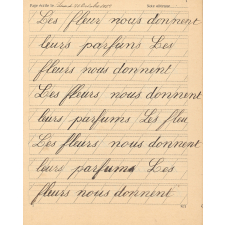 Les fleur nous donnent
leurs parfuns Les
fleurs nous donnent
Les fleurs nous donnent
leurs parfums Les fleu
Les fleurs nous donnent
leurs parfums Les
fleurs nous donnent